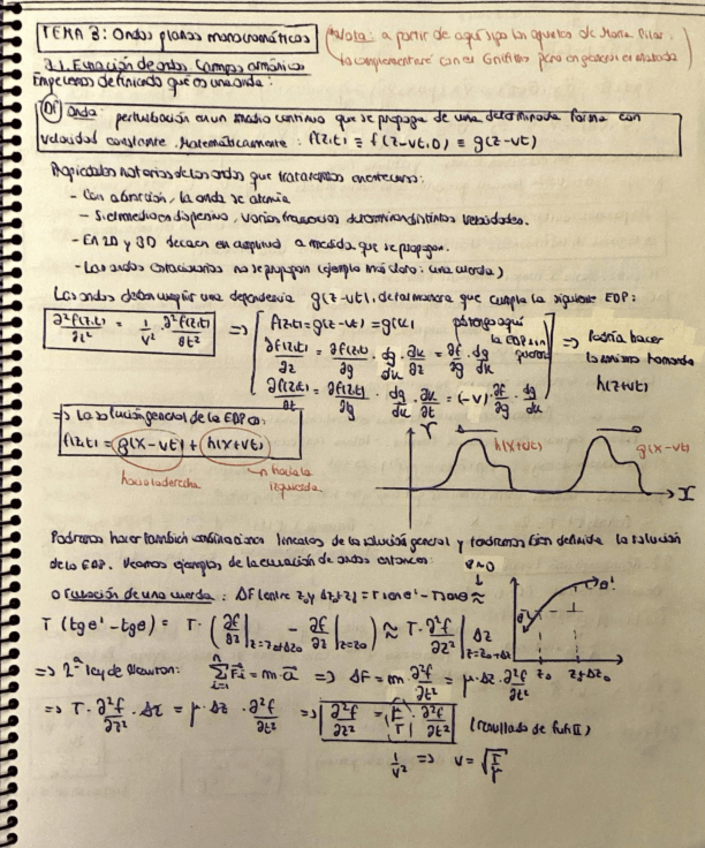 TEMA 3: Ondas planas monocromáticas
(Nota: a partir de aquí sigo los apuntes de María Pilar.
lo complementaré con el Griffiths pero en general es
3.1. Ecuación de ondas. Campos armónicos
Empecemos definiendo qué es una onda:
Df Onda: perturbación en un medio continuo que se propaga de una determinada forma con
velocidad constante. Matemáticamente: f(z,t) ≡ f(z-vt,0) ≡ g(z-vt)
Propiedades notorias de las ondas que trataremos en el curso:
- Con absorción, la onda se atenúa
- Si el medio es dispersivo, varias frecuencias determinan distintas velocidades.
- En 2D y 3D decaen en amplitud a medida que se propagan.
- Las ondas estacionarias no se propagan (ejemplo más claro: una cuerda)
Las ondas deben cumplir una dependencia g(z-vt), de tal manera que cumpla la siguiente EDP:
∂²f(z,t)/∂z² = 1/v² · ∂²f(z,t)/∂t² => [ f(z,t) = g(z-vt) = g(u)
∂f(z,t)/∂z = ∂f(z,t)/∂g · dg/du · ∂u/∂z = ∂f/∂g · dg/du
∂f(z,t)/∂t = ∂f(z,t)/∂g · dg/du · ∂u/∂t = (-v) · ∂f/∂g · dg/du
pongo aquí
la EDP
] => Podría hacer
lo mismo tomando
h(z+vt)
=> La solución general de la EDP es:
f(z,t) = g(x-vt) + h(x+vt)
hacia la derecha
hacia la
izquierda
Y
h(x+vt)
g(x-vt)
X
Podremos hacer también combinaciones lineales de la solución general y tendremos bien definida la solución
de la EDP. Veamos ejemplos de la ecuación de ondas entonces:
o Ecuación de una cuerda: ΔF (entre z₀ y Δz₀+z) = T sen θ' - T sen θ ≈
θ≈0
T (tg θ' - tg θ) = T · (∂f/∂z|z=z₀+Δz₀ - ∂f/∂z|z=z₀) ≈ T · ∂²f/∂z²|z=z₀+Δz Δz
θ'
θ
z₀
z+Δz₀
=> 2ª ley de Newton: Σ F⃗i = m·a⃗ => ΔF = m ∂²f/∂t² = μ·Δz · ∂²f/∂t²
=> T · ∂²f/∂z² · Δz = μ · Δz · ∂²f/∂t² => ∂²f/∂z² = μ/T · ∂²f/∂t² (resultado de fun II)
1/v² => v = √(T/μ)